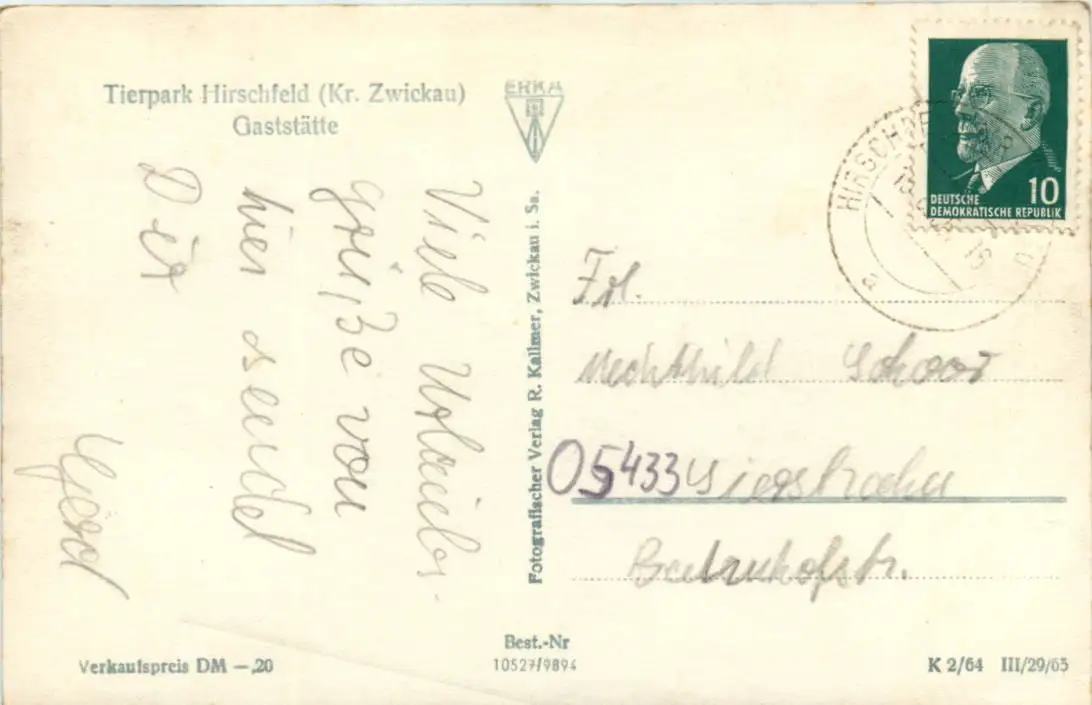 Tierpark Hirschfeld (Kr. Zwickau)
Gaststätte
ERKA
Viele Urlaubs-
grüße von
hier sendet
Dir
Gerd
Fotografischer Verlag R. Kallmer, Zwickau i. Sa.
DEUTSCHE
DEMOKRATISCHE REPUBLIK
10
HIRSCHFE
a
Frl.
Mechthild Schoor
05433
Bahnhofstr.
Verkaufspreis DM —,20
Best.-Nr
10527/9894
K 2/64 III/29/65